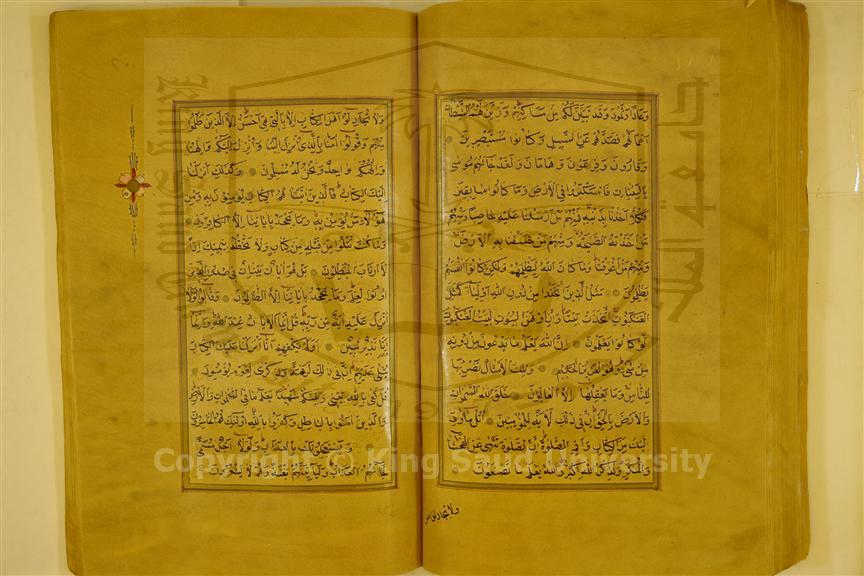 وَعَادًا وَثَمُودَ وَقَدْ تَبَيَّنَ لَكُمْ مِنْ مَسَاكِنِهِمْ وَزَيَّنَ لَهُمُ الشَّيْطَانُ
اَعْمَالَهُمْ فَصَدَّهُمْ عَنِ السَّبِيلِ وَكَانُوا مُسْتَبْصِرِينَ
وَقَارُونَ وَفِرْعَوْنَ وَهَامَانَ وَلَقَدْ جَاءَهُمْ مُوسٰى
بِالْبَيِّنَاتِ فَاسْتَكْبَرُوا فِي الْاَرْضِ وَمَا كَانُوا سَابِقِينَ
فَكُلًّا اَخَذْنَا بِذَنْبِهِ فَمِنْهُمْ مَنْ اَرْسَلْنَا عَلَيْهِ حَاصِبًا وَمِنْهُمْ
مَنْ اَخَذَتْهُ الصَّيْحَةُ وَمِنْهُمْ مَنْ خَسَفْنَا بِهِ الْاَرْضَ
وَمِنْهُمْ مَنْ اَغْرَقْنَا وَمَا كَانَ اللهُ لِيَظْلِمَهُمْ وَلٰكِنْ كَانُوا اَنْفُسَهُمْ
يَظْلِمُونَ مَثَلُ الَّذِينَ اتَّخَذُوا مِنْ دُونِ اللهِ اَوْلِيَاءَ كَمَثَلِ
الْعَنْكَبُوتِ اتَّخَذَتْ بَيْتًا وَاِنَّ اَوْهَنَ الْبُيُوتِ لَبَيْتُ الْعَنْكَبُوتِ
لَوْ كَانُوا يَعْلَمُونَ اِنَّ اللهَ يَعْلَمُ مَا يَدْعُونَ مِنْ دُونِهِ
مِنْ شَيْءٍ وَهُوَ الْعَزِيزُ الْحَكِيمُ وَتِلْكَ الْاَمْثَالُ نَضْرِبُهَا
لِلنَّاسِ وَمَا يَعْقِلُهَا اِلَّا الْعَالِمُونَ خَلَقَ اللهُ السَّمٰوَاتِ
وَالْاَرْضَ بِالْحَقِّ اِنَّ فِي ذٰلِكَ لَاٰيَةً لِلْمُؤْمِنِينَ اُتْلُ مَا اُوحِيَ
اِلَيْكَ مِنَ الْكِتَابِ وَاَقِمِ الصَّلٰوةَ اِنَّ الصَّلٰوةَ تَنْهٰى عَنِ الْفَحْشَاءِ
وَالْمُنْكَرِ وَلَذِكْرُ اللهِ اَكْبَرُ وَاللهُ يَعْلَمُ مَا تَصْنَعُونَ
ولا تجادلوا اهل
وَلَا تُجَادِلُوا اَهْلَ الْكِتَابِ اِلَّا بِالَّتِي هِيَ اَحْسَنُ اِلَّا الَّذِينَ ظَلَمُوا
مِنْهُمْ وَقُولُوا اٰمَنَّا بِالَّذِي اُنْزِلَ اِلَيْنَا وَاُنْزِلَ اِلَيْكُمْ وَاِلٰهُنَا
وَاِلٰهُكُمْ وَاحِدٌ وَنَحْنُ لَهُ مُسْلِمُونَ وَكَذٰلِكَ اَنْزَلْنَا
اِلَيْكَ الْكِتَابَ فَالَّذِينَ اٰتَيْنَاهُمُ الْكِتَابَ يُؤْمِنُونَ بِهِ وَمِنْ
هٰؤُلَاءِ مَنْ يُؤْمِنُ بِهِ وَمَا يَجْحَدُ بِاٰيَاتِنَا اِلَّا الْكَافِرُونَ
وَمَا كُنْتَ تَتْلُوا مِنْ قَبْلِهِ مِنْ كِتَابٍ وَلَا تَخُطُّهُ بِيَمِينِكَ اِذًا
لَارْتَابَ الْمُبْطِلُونَ بَلْ هُوَ اٰيَاتٌ بَيِّنَاتٌ فِي صُدُورِ الَّذِينَ
اُوتُوا الْعِلْمَ وَمَا يَجْحَدُ بِاٰيَاتِنَا اِلَّا الظَّالِمُونَ وَقَالُوا لَوْلَا
اُنْزِلَ عَلَيْهِ اٰيَةٌ مِنْ رَبِّهِ قُلْ اِنَّمَا الْاٰيَاتُ عِنْدَ اللهِ وَاِنَّمَا
اَنَا نَذِيرٌ مُبِينٌ اَوَلَمْ يَكْفِهِمْ اَنَّا اَنْزَلْنَا عَلَيْكَ الْكِتَابَ
يُتْلٰى عَلَيْهِمْ اِنَّ فِي ذٰلِكَ لَرَحْمَةً وَذِكْرٰى لِقَوْمٍ يُؤْمِنُونَ
قُلْ كَفٰى بِاللهِ بَيْنِي وَبَيْنَكُمْ شَهِيدًا يَعْلَمُ مَا فِي السَّمٰوَاتِ وَالْاَرْضِ
وَالَّذِينَ اٰمَنُوا بِالْبَاطِلِ وَكَفَرُوا بِاللهِ اُولٰئِكَ هُمُ الْخَاسِرُونَ
وَيَسْتَعْجِلُونَكَ بِالْعَذَابِ وَلَوْلَا اَجَلٌ مُسَمًّى
لَجَاءَهُمُ الْعَذَابُ وَلَيَأْتِيَنَّهُمْ بَغْتَةً وَهُمْ لَا يَشْعُرُونَ
Copyright © King Saud University
جامعة الملك سعود